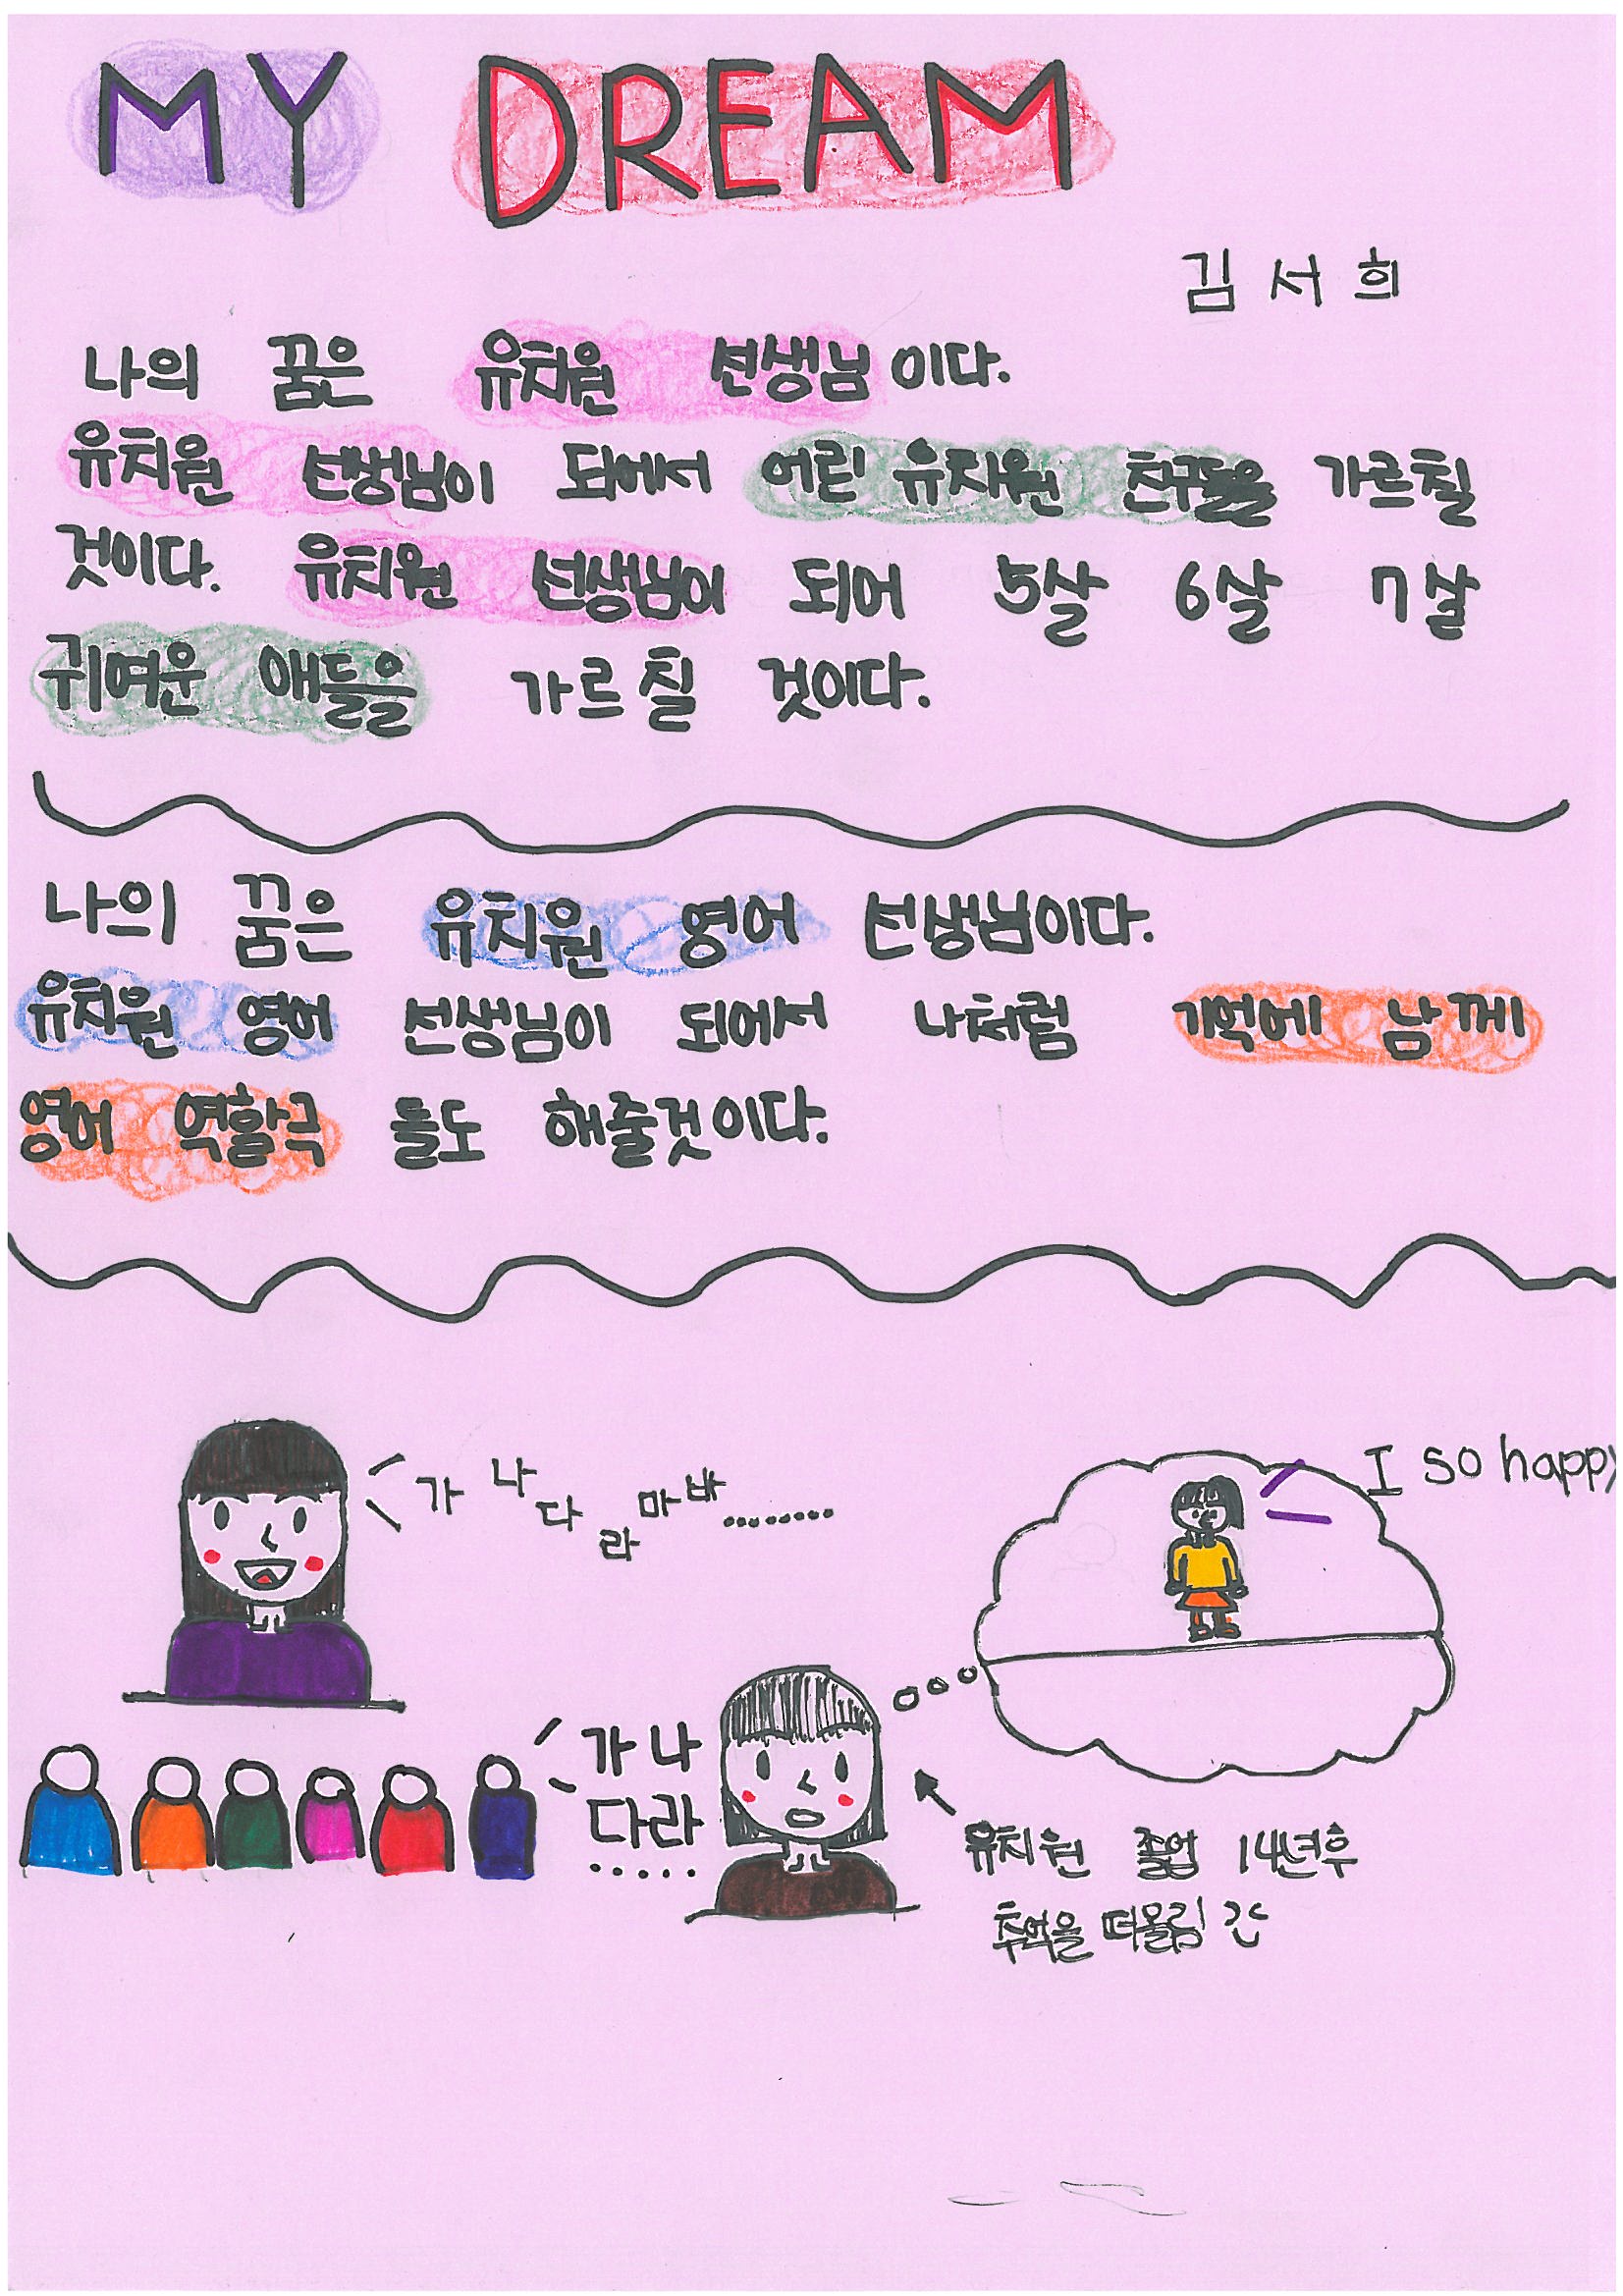 MY DREAM
김서희
나의 꿈은 유치원 선생님이다.
유치원 선생님이 되어서 어린 유치원 친구들을 가르칠
것이다. 유치원 선생님이 되어 5살 6살 7살
귀여운 애들을 가르칠 것이다.
나의 꿈은 유치원 영어 선생님이다.
유치원 영어 선생님이 되어서 나처럼 기억에 남께
영어 역할극 들도 해줄것이다.
가 나 다 라 마 바........
I so happy
가 나
다라
.....
유치원 졸업 14년후
추억을 떠올림